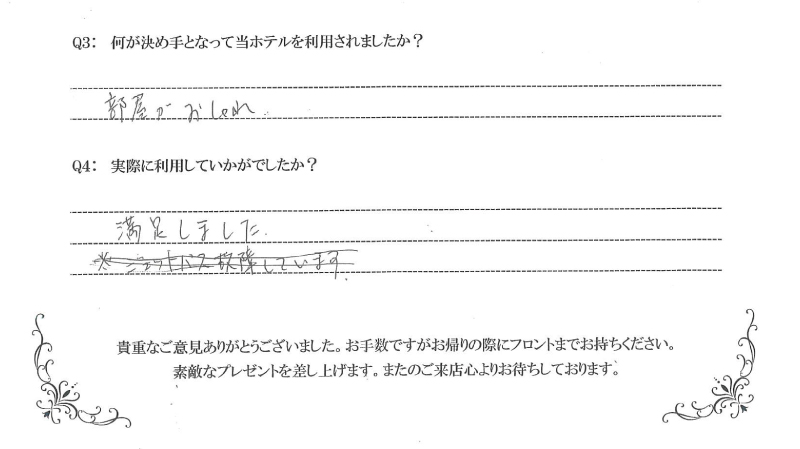 Q3: 何が決め手となって当ホテルを利用されましたか？
部屋がおしゃれ
Q4: 実際に利用していかがでしたか？
満足しました.
※ジェットバス故障しています.
貴重なご意見ありがとうございました。お手数ですがお帰りの際にフロントまでお持ちください。
素敵なプレゼントを差し上げます。またのご来店心よりお待ちしております。